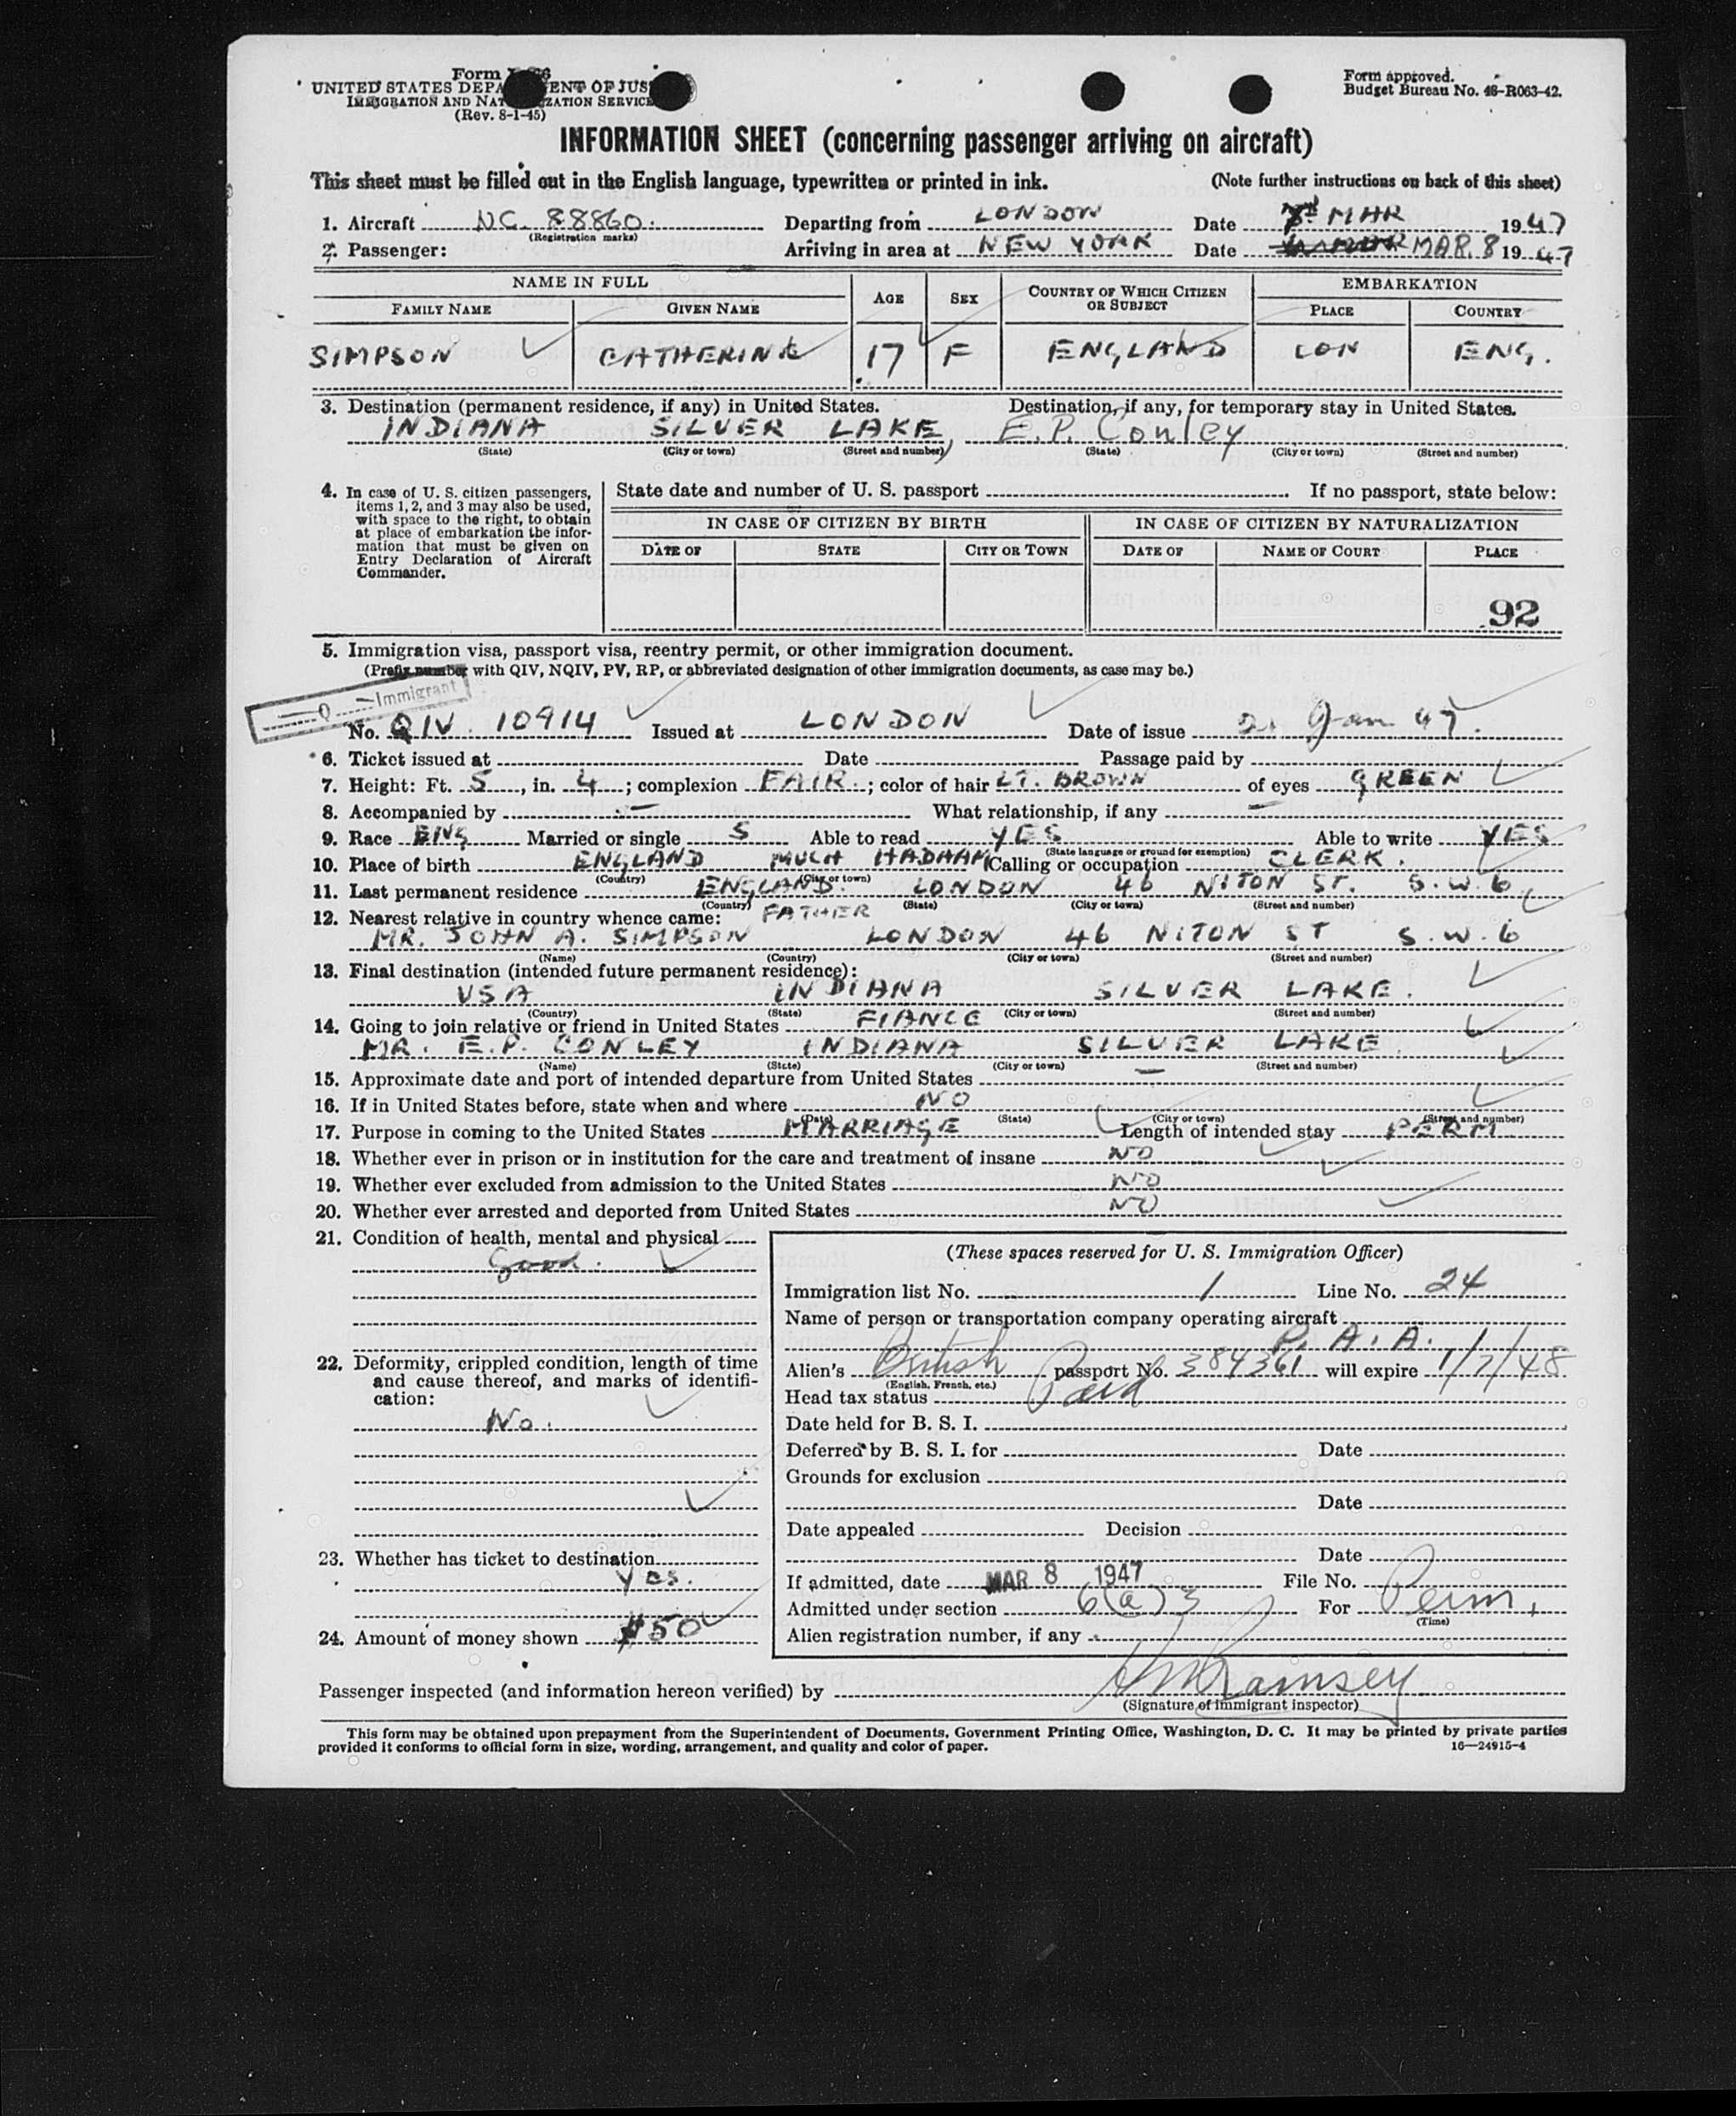 Form I-466
UNITED STATES DEPARTMENT OF JUSTICE
IMMIGRATION AND NATURALIZATION SERVICE
(Rev. 8-1-45)
Form approved.
Budget Bureau No. 43-R063-42.
INFORMATION SHEET (concerning passenger arriving on aircraft)
This sheet must be filled out in the English language, typewritten or printed in ink. (Note further instructions on back of this sheet)
1. Aircraft NC. 88860. Departing from LONDON Date MAR 1947
(Registration marks)
2. Passenger: Arriving in area at NEW YORK Date MAR. 8 1947
NAME IN FULL AGE SEX COUNTRY OF WHICH CITIZEN OR SUBJECT EMBARKATION
FAMILY NAME GIVEN NAME PLACE COUNTRY
SIMPSON CATHERINE 17 F ENGLAND LON ENG.
3. Destination (permanent residence, if any) in United States. Destination, if any, for temporary stay in United States.
INDIANA SILVER LAKE, E.P. Conley
(State) (City or town) (Street and number) (State) (City or town) (Street and number)
4. In case of U. S. citizen passengers, items 1, 2, and 3 may also be used, with space to the right, to obtain at place of embarkation the information that must be given on Entry Declaration of Aircraft Commander.
State date and number of U. S. passport If no passport, state below:
IN CASE OF CITIZEN BY BIRTH IN CASE OF CITIZEN BY NATURALIZATION
DATE OF STATE CITY OR TOWN DATE OF NAME OF COURT PLACE
92
5. Immigration visa, passport visa, reentry permit, or other immigration document.
(Prefix number with QIV, NQIV, PV, RP, or abbreviated designation of other immigration documents, as case may be.)
Q Immigrant
No. QIV. 10914 Issued at LONDON Date of issue Jan 47.
6. Ticket issued at Date Passage paid by
7. Height: Ft. 5, in. 4; complexion FAIR.; color of hair LT. BROWN of eyes GREEN
8. Accompanied by — What relationship, if any —
9. Race ENG Married or single S Able to read YES Able to write YES
(State language or ground for exemption)
10. Place of birth ENGLAND MUCH HADHAM Calling or occupation CLERK.
(Country) (City or town)
11. Last permanent residence ENGLAND. LONDON 46 NITON ST. S.W.6.
(Country) (State) (City or town) (Street and number)
12. Nearest relative in country whence came: FATHER
MR. JOHN A. SIMPSON LONDON 46 NITON ST S.W.6
(Name) (Country) (City or town) (Street and number)
13. Final destination (intended future permanent residence):
USA INDIANA SILVER LAKE.
(Country) (State) (City or town) (Street and number)
14. Going to join relative or friend in United States FIANCE
MR. E.P. CONLEY INDIANA SILVER LAKE.
(Name) (State) (City or town) (Street and number)
15. Approximate date and port of intended departure from United States —
16. If in United States before, state when and where NO
(Date) (State) (City or town) (Street and number)
17. Purpose in coming to the United States MARRIAGE Length of intended stay PERM
18. Whether ever in prison or in institution for the care and treatment of insane NO
19. Whether ever excluded from admission to the United States NO
20. Whether ever arrested and deported from United States NO
21. Condition of health, mental and physical
Good.
22. Deformity, crippled condition, length of time and cause thereof, and marks of identification:
No.
23. Whether has ticket to destination
Yes.
24. Amount of money shown $50
(These spaces reserved for U. S. Immigration Officer)
Immigration list No. 1 Line No. 24
Name of person or transportation company operating aircraft
P. A. A.
Alien's British passport No. 384361 will expire 1/7/48
(English, French, etc.)
Head tax status Paid
Date held for B. S. I.
Deferred by B. S. I. for Date
Grounds for exclusion
Date
Date appealed Decision
Date
If admitted, date MAR 8 1947 File No.
Admitted under section 6(a)3 For Perm.
(Time)
Alien registration number, if any
Passenger inspected (and information hereon verified) by Ramsey
(Signature of immigrant inspector)
This form may be obtained upon prepayment from the Superintendent of Documents, Government Printing Office, Washington, D. C. It may be printed by private parties
provided it conforms to official form in size, wording, arrangement, and quality and color of paper. 16—24915-4